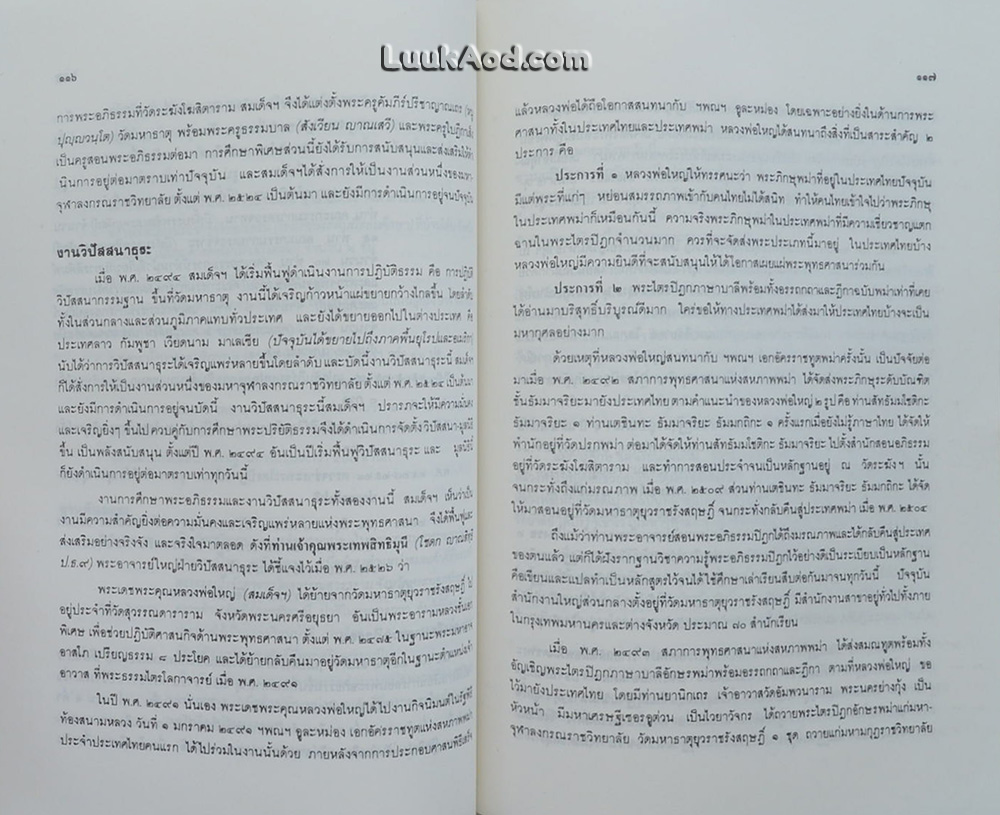 LuukAod.com
๑๑๖
การพระอภิธรรมที่วัดระฆังโฆสิตาราม สมเด็จฯ จึงได้แต่งตั้งพระครูคัมภีร์ปรีชาญาณเถร
ปุญฺญวนฺโต) วัดมหาธาตุ พร้อมพระครูธรรมบาล (สังเวียน ญาณเสวี) และพระครูใบฎีกา
เป็นครูสอนพระอภิธรรมต่อมา การศึกษาพิเศษส่วนนี้ยังได้รับการสนับสนุนและส่งเสริมให้
เนินการอยู่ต่อมาตราบเท่าปัจจุบัน และสมเด็จฯได้สั่งการให้เป็นงานส่วนหนึ่งของมหา
จุฬาลงกรณราชวิทยาลัย ตั้งแต่ พ.ศ. ๒๕๒๔ เป็นต้นมา และยังมีการดำเนินการอยู่จนปัจจุบัน
งานวิปัสสนาธุระ
เมื่อ พ.ศ. ๒๔๙๔ สมเด็จฯ ได้เริ่มฟื้นฟูดำเนินงานการปฏิบัติธรรม คือ การปฏิบัติ
วิปัสสนากรรมฐาน ขึ้นที่วัดมหาธาตุ งานนี้ได้เจริญก้าวหน้าแผ่ขยายกว้างไกลขึ้น โดยลำดับ
ทั้งในส่วนกลางและส่วนภูมิภาคแทบทั่วประเทศ และยังได้ขยายออกไปในต่างประเทศ คือ
ประเทศลาว กัมพูชา เวียดนาม มาเลเซีย (ปัจจุบันได้ขยายไปถึงภาคพื้นยุโรปและอเมริกา)
นับได้ว่าการวิปัสสนาธุระได้เจริญแพร่หลายขึ้นโดยลำดับ และบัดนี้งานวิปัสสนาธุระนี้ สมเด็จฯ
ก็ได้สั่งการให้เป็นงานส่วนหนึ่งของมหาจุฬาลงกรณราชวิทยาลัย ตั้งแต่ พ.ศ. ๒๕๒๔ เป็นต้นมา
และยังมีการดำเนินการอยู่จนบัดนี้ งานวิปัสสนาธุระนี้สมเด็จฯ ปรารภจะให้มีความมั่นคง
และเจริญยิ่งๆ ขึ้นไป ควบคู่กับการศึกษาพระปริยัติธรรมจึงได้ดำเนินการจัดตั้งวิปัสสนา-มูลนิธิ
ขึ้น เป็นพลังสนับสนุน ตั้งแต่ปี พ.ศ. ๒๔๙๔ อันเป็นปีเริ่มฟื้นฟูวิปัสสนาธุระ และ มูลนิธินี้
ก็ยังดำเนินการอยู่ต่อมาตราบเท่าทุกวันนี้
งานการศึกษาพระอภิธรรมและงานวิปัสสนาธุระทั้งสองงานนี้ สมเด็จฯ เห็นว่าเป็น
งานมีความสำคัญยิ่งต่อความมั่นคงและเจริญแพร่หลายแห่งพระพุทธศาสนา จึงได้ฟื้นฟูและ
ส่งเสริมอย่างจริงจัง และจริงใจมาตลอด ดังที่ท่านเจ้าคุณพระเทพสิทธิมุนี (โชดก ญาณสิทฺธิ
ป.ธ.๙) พระอาจารย์ใหญ่ฝ่ายวิปัสสนาธุระ ได้ชี้แจงไว้เมื่อ พ.ศ. ๒๕๒๖ ว่า
พระเดชพระคุณหลวงพ่อใหญ่ (สมเด็จฯ) ได้ย้ายจากวัดมหาธาตุยุวราชรังสฤษฎิ์ ไป
อยู่ประจำที่วัดสุวรรณดาราราม จังหวัดพระนครศรีอยุธยา อันเป็นพระอารามหลวงชั้นเอก
พิเศษ เพื่อช่วยปฏิบัติศาสนกิจด้านพระพุทธศาสนา ตั้งแต่ พ.ศ. ๒๔๗๕ ในฐานะพระมหาอาจ
อาสโภ เปรียญธรรม ๘ ประโยค และได้ย้ายกลับคืนมาอยู่วัดมหาธาตุอีกในฐานะตำแหน่งเจ้า
อาวาส ที่พระธรรมไตรโลกาจารย์ เมื่อ พ.ศ. ๒๔๙๑
ในปี พ.ศ. ๒๔๙๑ นั่นเอง พระเดชพระคุณหลวงพ่อใหญ่ได้ไปงานกิจนิมนต์ในรัฐพิธี
ท้องสนามหลวง วันที่ ๑ มกราคม ๒๔๙๑ ฯพณฯ อูละหม่อง เอกอัครราชทูตแห่งสหภาพพม่า
ประจำประเทศไทยคนแรก ได้ไปร่วมในงานนั้นด้วย ภายหลังจากการประกอบศาสนพิธีเสร็จ
๑๑๗
แล้วหลวงพ่อได้ถือโอกาสสนทนากับ ฯพณฯ อูละหม่อง โดยเฉพาะอย่างยิ่งในด้านการพระ
ศาสนาทั้งในประเทศไทยและประเทศพม่า หลวงพ่อใหญ่ได้สนทนาถึงสิ่งที่เป็นสาระสำคัญ ๒
ประการ คือ
ประการที่ ๑ หลวงพ่อใหญ่ให้ทรรศนะว่า พระภิกษุพม่าที่อยู่ในประเทศไทยปัจจุบัน
มีแต่พระที่แก่ๆ หย่อนสมรรถภาพเข้ากับคนไทยไม่ได้สนิท ทำให้คนไทยเข้าใจไปว่าพระภิกษุ
ในประเทศพม่าก็เหมือนกันนี้ ความจริงพระภิกษุพม่าในประเทศพม่าที่มีความเชี่ยวชาญแตก
ฉานในพระไตรปิฎกจำนวนมาก ควรที่จะจัดส่งพระประเภทนี้มาอยู่ ในประเทศไทยบ้าง
หลวงพ่อใหญ่มีความยินดีที่จะสนับสนุนให้ได้โอกาสเผยแผ่พระพุทธศาสนาร่วมกัน
ประการที่ ๒ พระไตรปิฎกภาษาบาลีพร้อมทั้งอรรถกถาและฎีกาฉบับพม่าเท่าที่เคย
ได้อ่านมาบริสุทธิ์บริบูรณ์ดีมาก ใคร่ขอให้ทางประเทศพม่าได้ส่งมาให้ประเทศไทยบ้างจะเป็น
มหากุศลอย่างมาก
ด้วยเหตุที่หลวงพ่อใหญ่สนทนากับ ฯพณฯ เอกอัครราชทูตพม่าครั้งนั้น เป็นปัจจัยต่อ
มาเมื่อ พ.ศ. ๒๔๙๒ สภาการพุทธศาสนาแห่งสหภาพพม่า ได้จัดส่งพระภิกษุระดับบัณฑิต
ชั้นธัมมาจริยะมายังประเทศไทย ตามคำแนะนำของหลวงพ่อใหญ่ ๒ รูป คือ ท่านสัทธัมมโชติกะ
ธัมมาจริยะ ๑ ท่านเตชินทะ ธัมมาจริยะ ธัมมกถิกะ ๑ ครั้งแรกเมื่อยังไม่รู้ภาษาไทย ได้จัดให้
พำนักอยู่ที่วัดปรกพม่า ต่อมาได้จัดให้ท่านสัทธัมมโชติกะ ธัมมาจริยะ ไปตั้งสำนักสอนอภิธรรม
อยู่ที่วัดระฆังโฆสิตาราม และทำการสอนประจำเป็นหลักฐานอยู่ ณ วัดระฆังฯ นั้น
จนกระทั่งถึงแก่มรณภาพ เมื่อ พ.ศ. ๒๕๐๙ ส่วนท่านเตชินทะ ธัมมาจริยะ ธัมมกถิกะ ได้จัด
ให้มาสอนอยู่ที่วัดมหาธาตุยุวราชรังสฤษฎิ์ จนกระทั่งกลับคืนสู่ประเทศพม่า เมื่อ พ.ศ. ๒๕๐๔
ถึงแม้ว่าท่านพระอาจารย์สอนพระอภิธรรมปิฎกได้ถึงมรณภาพและได้กลับคืนสู่ประเทศ
ของตนแล้ว แต่ก็ได้ฝังรากฐานวิชาความรู้พระอภิธรรมปิฎกไว้อย่างดีเป็นระเบียบเป็นหลักฐาน
คือเขียนและแปลทำเป็นหลักสูตรไว้จนได้ใช้ศึกษาเล่าเรียนสืบต่อกันมาจนทุกวันนี้ ปัจจุบัน
สำนักงานใหญ่ส่วนกลางตั้งอยู่ที่วัดมหาธาตุยุวราชรังสฤษฎิ์ มีสำนักงานสาขาอยู่ทั่วไปทั้งภาย
ในกรุงเทพมหานครและต่างจังหวัด ประมาณ ๗๐ สำนักเรียน
เมื่อ พ.ศ. ๒๔๙๓ สภาการพุทธศาสนาแห่งสหภาพพม่า ได้ส่งสมณทูตพร้อมทั้ง
อัญเชิญพระไตรปิฎกภาษาบาลีอักษรพม่าพร้อมอรรถกถาและฎีกา ตามที่หลวงพ่อใหญ่ ขอ
ไว้มายังประเทศไทย โดยมีท่านยานิกเถร เจ้าอาวาสวัดอัมพวนาราม พระนครย่างกุ้ง เป็น
หัวหน้า มีมหาเศรษฐีเซอรอูต่วน เป็นไวยาวัจกร ได้ถวายพระไตรปิฎกอักษรพม่าแก่มหา-
จุฬาลงกรณราชวิทยาลัย วัดมหาธาตุยุวราชรังสฤษฎิ์ ๑ ชุด ถวายแก่มหามกุฏราชวิทยาลัย